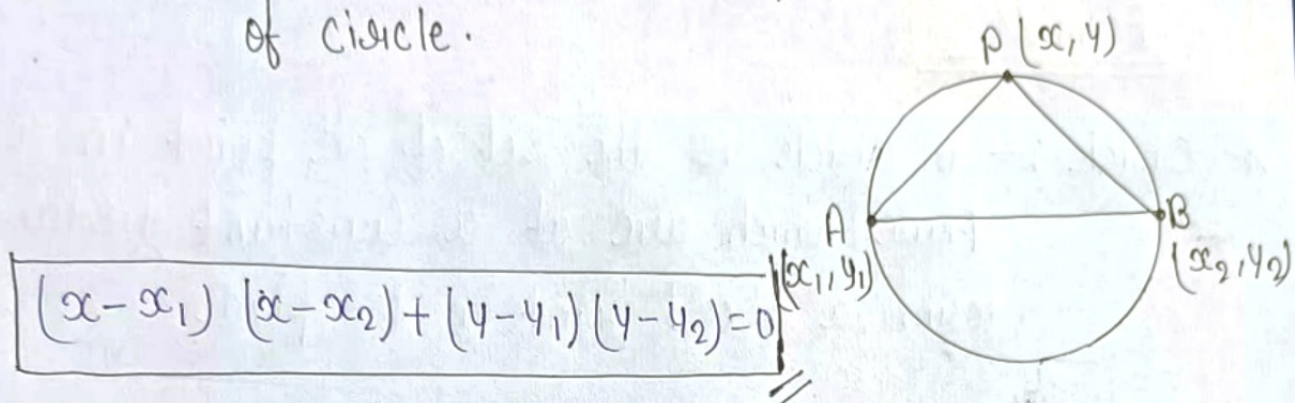 of circle.
P(x,y)
A
B
(x₁,y₁)
(x₂,y₂)
(x-x₁) (x-x₂)+(y-y₁)(y-y₂)=0